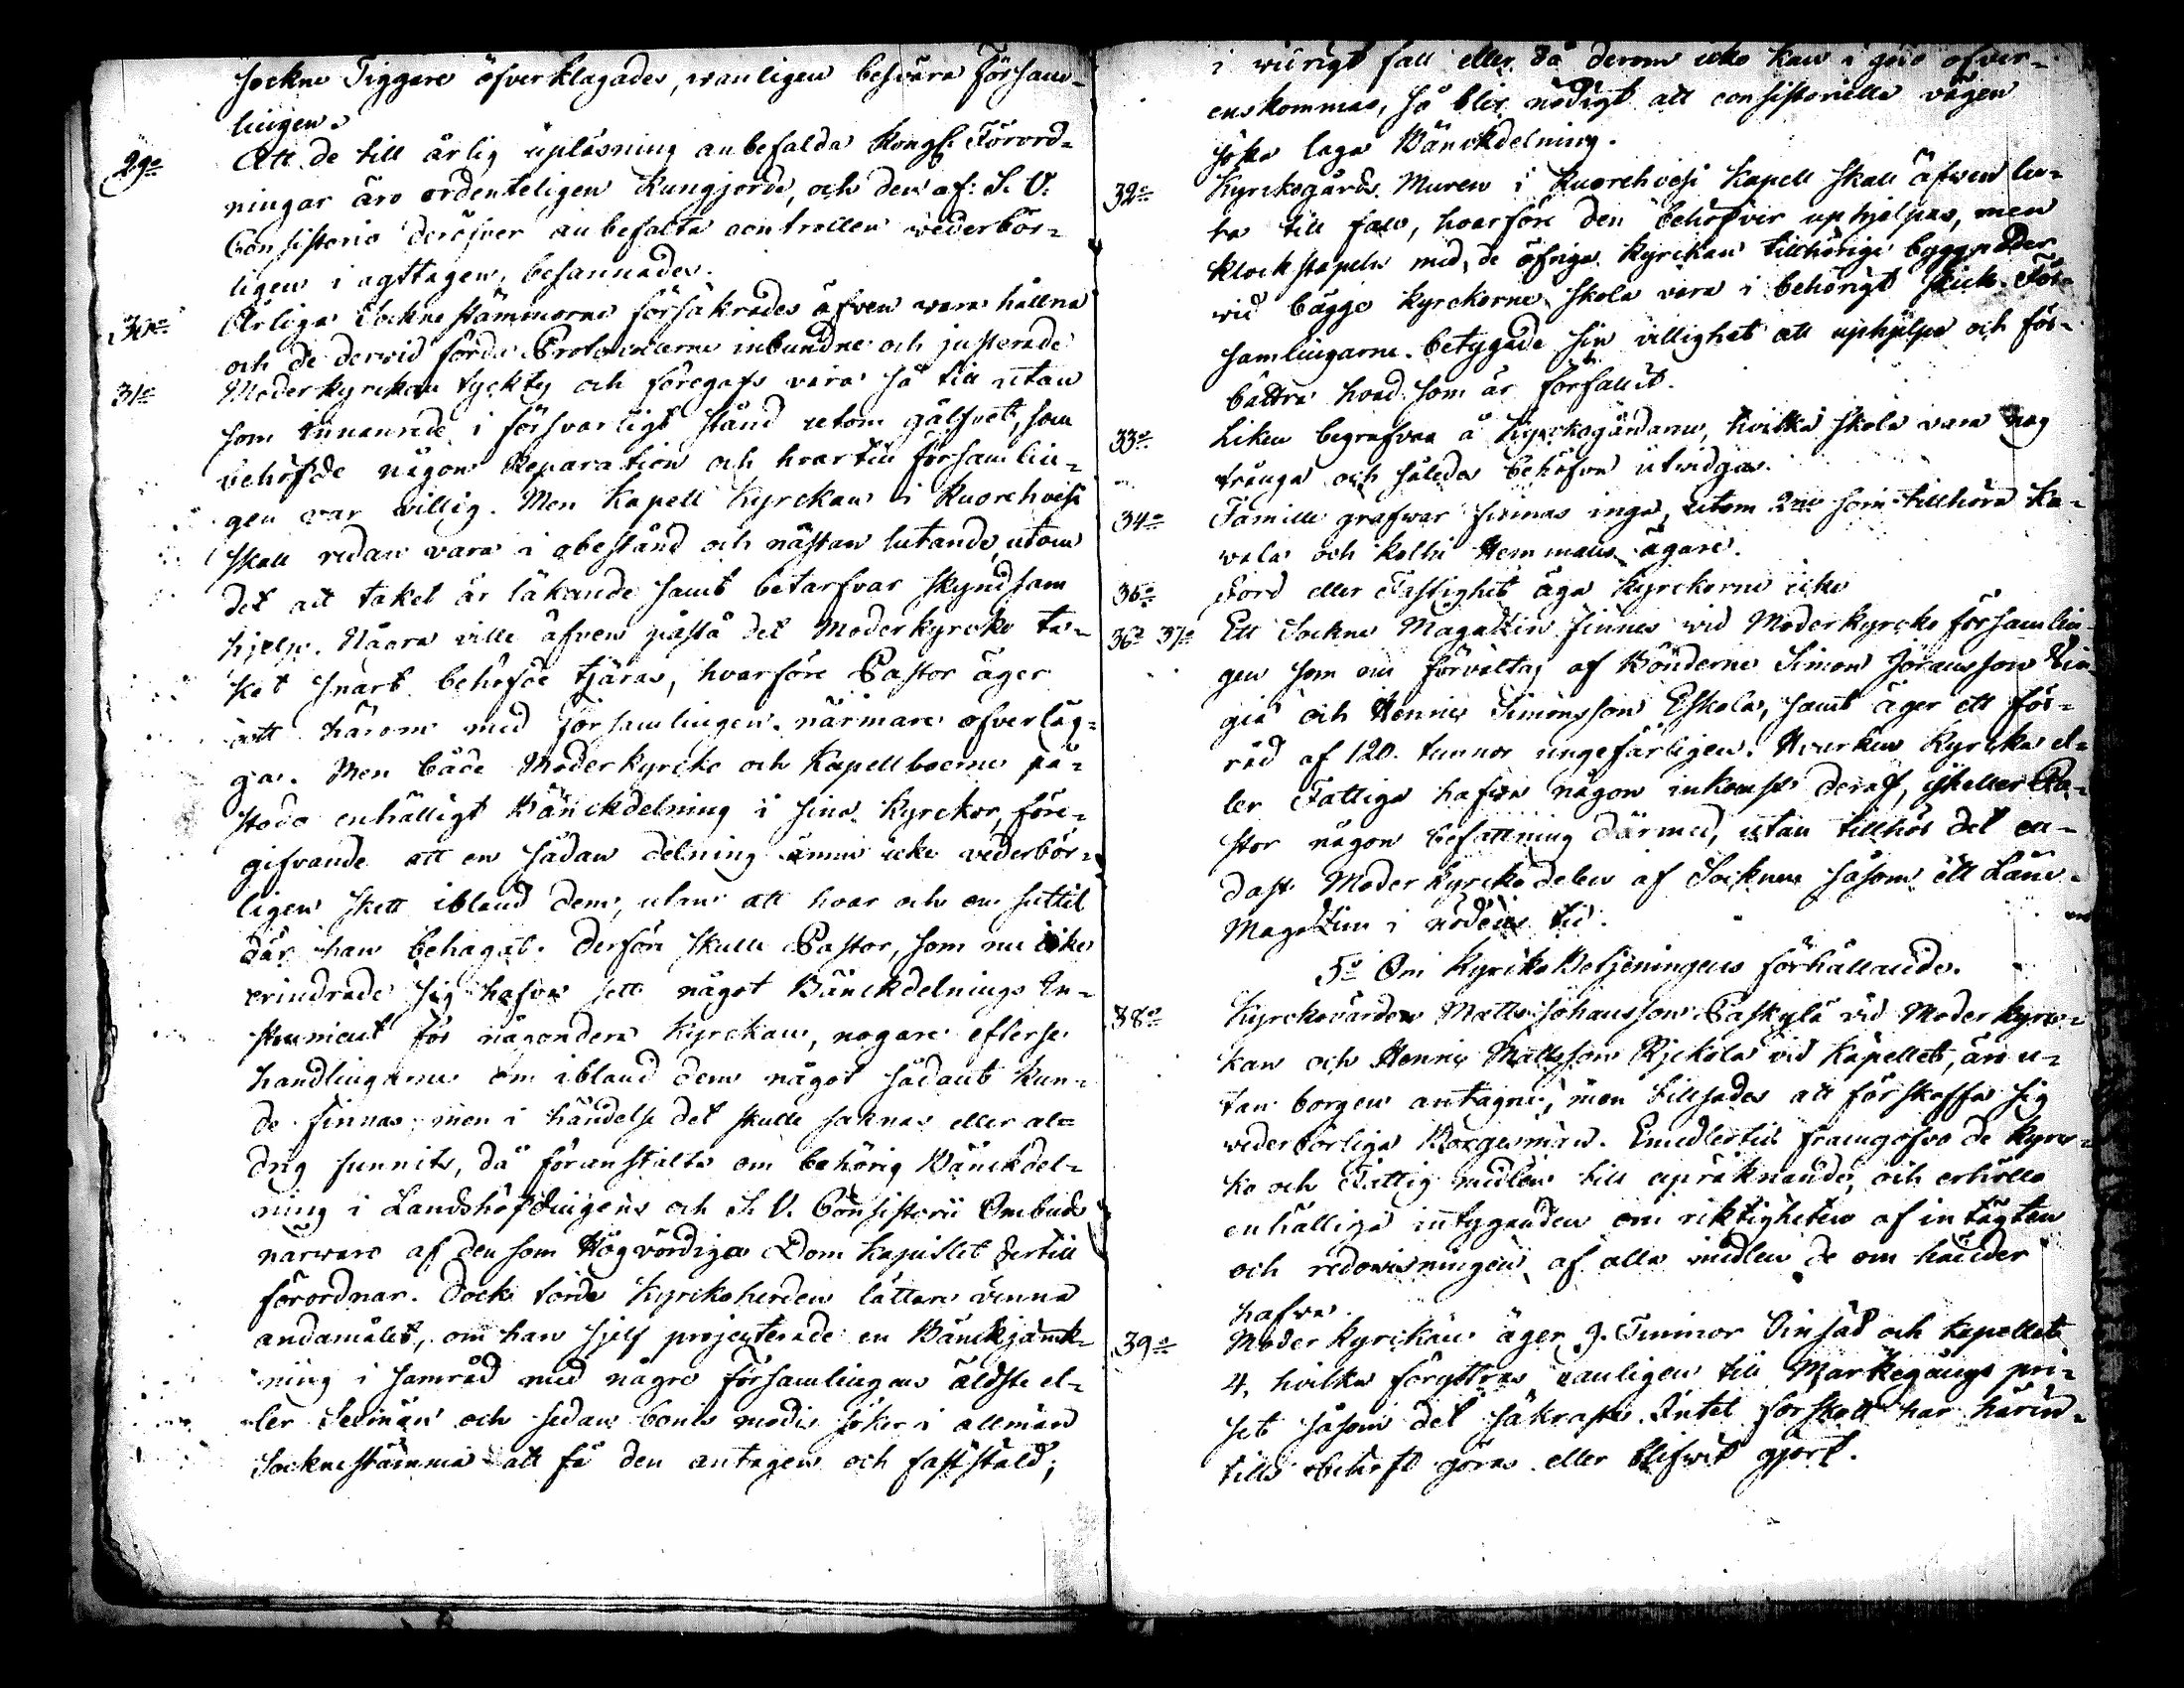 sockne Tiggare öfverklagades, wanligen besvära Försam-
lingen.
29o Att de till årlig upläsning anbefalda Kongl. Förord-
ningar äro ordenteligen kungjorde, och den af S. V.
Consistorio deröfver anbefalta controllen wederbör-
ligen i agttagen, besannades.
30o Årliga Sockne stämmorna försäkrades äfven wara hållna
och de derwid förda Protocollerne inbundne och justerade
31o Moderkyrckan tyckty och föregafs vara så til utan
som innanrede i försvarligt stånd utom gålfvet, som
behöfde någon Reparation och hvartill församlin-
gen var villig. Men Kapell Kyrckan i Kuorehvesi
skall redan vara i obestånd och nästan lutande, utom
det att taket är läkande samt betarfvar skyndsam
hjelp. Några ville äfven påstå det Moderkyrcko ta-
ket snart behöfde tjäras, hvarföre Pastor äger
att härom med församlingen närmare öfverläg-
ga. Men både Moderkyrcko och Kapellboerne på-
stodo enhälligt Bänckdelning i sina Kyrckor, före-
gifvande att en sådan delning ännu icke vederbör-
ligen skett ibland dem, utan att hvar och en suttit
där han behagat. Derföre skulle Pastor, som nu icke
erindrade sig hafva sett något Bänckdelnings In-
strument för någondera Kyrckan, nogare efterse
handlingarne om ibland dem något sådant kun-
de finnas, men i händelse det skulle saknas eller al-
drig funnits, då föranstalta om behörig Bänckdel-
ning i Landshöfdingens och S. V. Consistorii Ombuds
närwaro af den som Högvördiga Dom Kapitlet dertill
förordnar. Dock torde Kyrckoherden lättare vinna
andamålet, om han sjelf projecterade en Bänckjämk-
ning i samråd med några församlingens äldste el-
ler Sexmän och sedan bonis modis söker i allmän
Sockne stämma att få den antagen och fastställd;
i vidrigt fall eller då derom icke kan i godo öfver-
enskommas, så blir nödigt att consistorielle vägen
söka laga Bänckdelning.
32o Kyrckogårds Muren i Kuorehvesi Kapell skall äfven lu-
ta till fall, hvarföre den behöfver uphjelpas, men
Klockstapeln med de öfriga Kyrckan tillhörige byggnader
wid bägge Kyrckorne skola vara i behörigt skick. För-
samlingarne betygade sin villighet att uphjelpa och för-
bättra hvad som är förfallit.
33o Liken begrafvas å Kyrckogårdarne, hvilka skola vara nog
trånga och således behöfva utvidgas.
34o Famille grafwar finnas inga, utom 2ne som tillhöra Ka-
vala och Kolhi Hemmans ägare.
35o Jord eller Fastighet äga Kyrckorne icke
36o 37o Ett Sockne Magazin finnes wid Moderkyrcko församlin-
gen som nu förvaltas af Bönderne Simon Jöransson
och Henric Simonsson Eskola, samt äger ett för-
råd af 120. tunnor ungefärligen. Hvarken Kyrcka el-
ler Fattiga hafva någon inkomst deraf, ej heller Pa-
stor någon befattning därmed, utan tillhör det en-
dast Moderkyrcko delen af Socknen såsom ett Låne-
Magazin i nödens tid.
5o Om Kyrcko Betjeningens förhållande.
38o Kyrckovärden Matts Johansson Paskylä vid Moderkyrc-
kan och Henric Mattsson vid Kapellet, äro u-
tan borgen antagne, men tillsades att förskaffa sig
wederbörliga Borgesmän. Emedlertid framgofvo de Kyrc-
ko och Fattig medlen till upräknande, och erhöllo
enhälliga intyganden om riktigheten af intägten
och redovisningen af alla medlen de om händer
hafva.
39o Moderkyrckan äger 9. Tunnor Vinsäd och Kapellet
4, hvilka föryttras vanligen till Markegångs pri-
set såsom det säkraste. Intet förskott har härin-
tills behöft göras eller blifvit gjort.